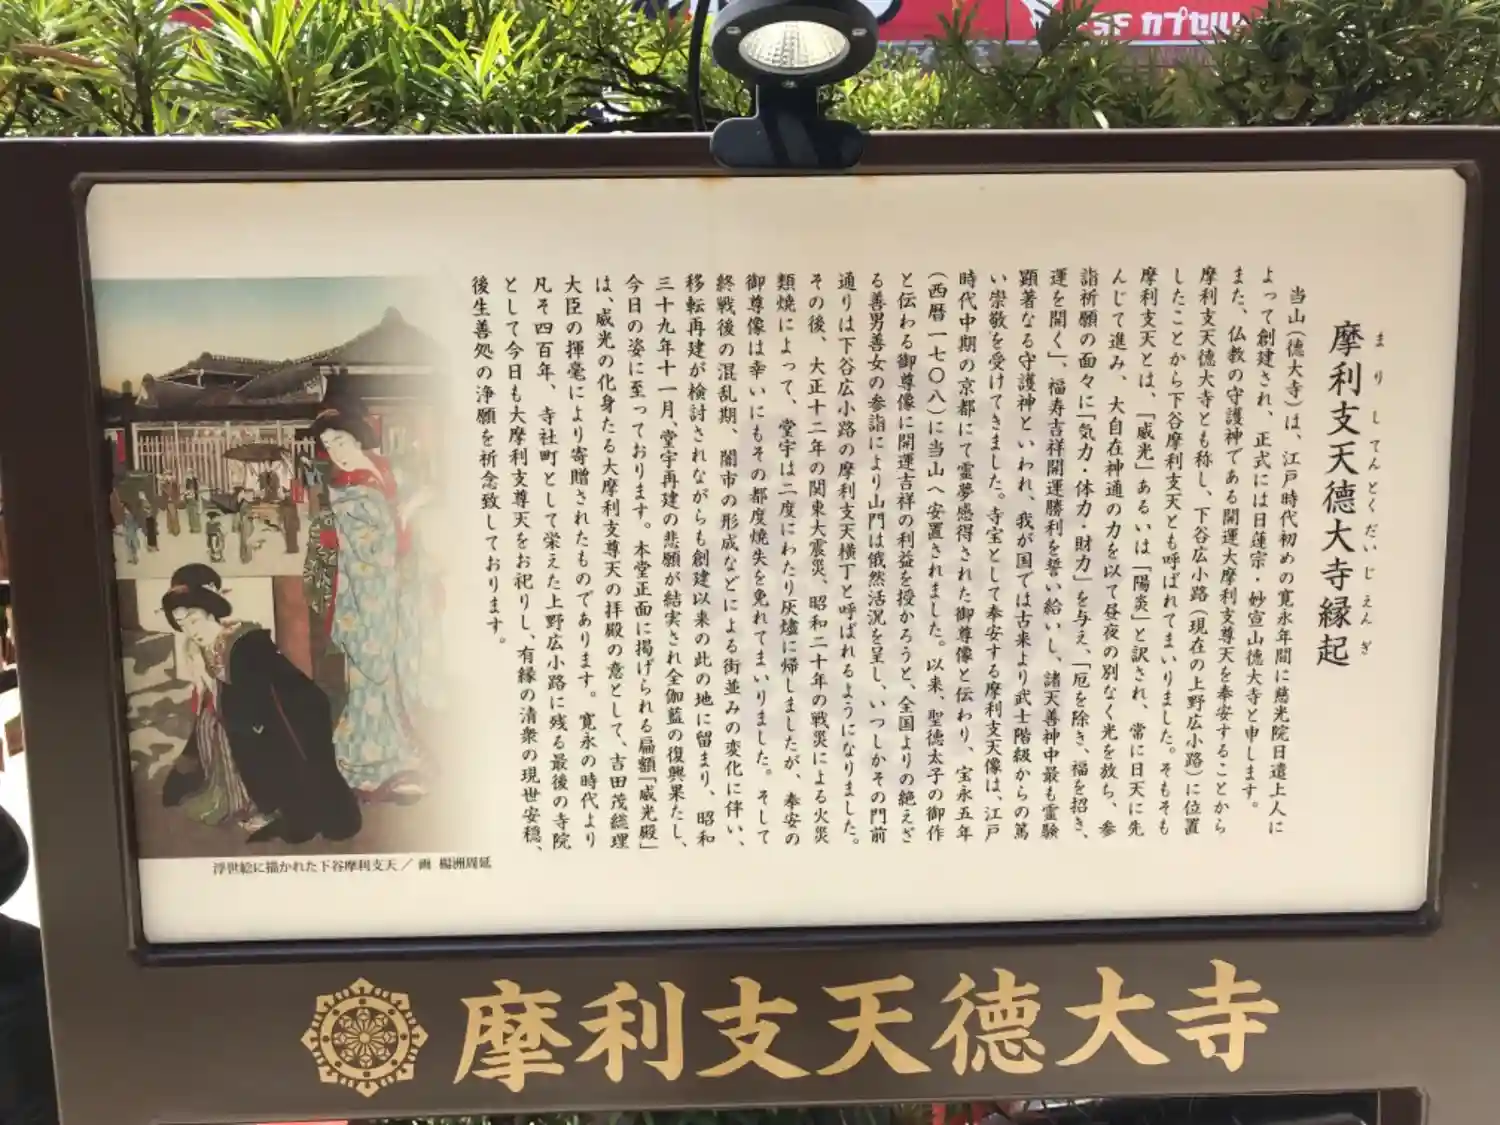 SF カプセル
まりしてんとくだいじえんぎ
摩利支天徳大寺縁起
当山(徳大寺)は、江戸時代初めの寛永年間に慈光院日遣上人に
よって創建され、正式には日蓮宗・妙宣山徳大寺と申します。
また、仏教の守護神である開運大摩利支尊天を奉安することから
摩利支天徳大寺とも称し、下谷広小路(現在の上野広小路)に位置
したことから下谷摩利支天とも呼ばれてまいりました。そもそも
摩利支天とは、「威光」あるいは「陽炎」と訳され、常に日天に先
んじて進み、大自在神通の力を以て昼夜の別なく光を放ち、参
詣祈願の面々に「気力・体力・財力」を与え、「厄を除き、福を招き、
運を開く」、福寿吉祥開運勝利を誓い給いし、諸天善神中最も霊験
顕著なる守護神といわれ、我が国では古来より武士階級からの篤
い崇敬を受けてきました。寺宝として奉安する摩利支天像は、江戸
時代中期の京都にて霊夢感得された御尊像と伝わり、宝永五年
(西暦一七〇八)に当山へ安置されました。以来、聖徳太子の御作
と伝わる御尊像に開運吉祥の利益を授かろうと、全国よりの絶えざ
る善男善女の参詣により山門は俄然活況を呈し、いつしかその門前
通りは下谷広小路の摩利支天横丁と呼ばれるようになりました。
その後、大正十二年の関東大震災、昭和二十年の戦災による火災
類焼によって、堂宇は二度にわたり灰燼に帰しましたが、奉安の
御尊像は幸いにもその都度焼失を免れてまいりました。そして
終戦後の混乱期、闇市の形成などによる街並みの変化に伴い、
移転再建が検討されながらも創建以来の此の地に留まり、昭和
三十九年十一月、堂宇再建の悲願が結実され全伽藍の復興果たし、
今日の姿に至っております。本堂正面に掲げられる扁額「威光殿」
は、威光の化身たる大摩利支尊天の拝殿の意として、吉田茂総理
大臣の揮毫により寄贈されたものであります。寛永の時代より
凡そ四百年、寺社町として栄えた上野広小路に残る最後の寺院
として今日も大摩利支尊天をお祀りし、有縁の清衆の現世安穏、
後生善処の浄願を祈念致しております。
浮世絵に描かれた下谷摩利支天／画 楊洲周延
摩利支天徳大寺